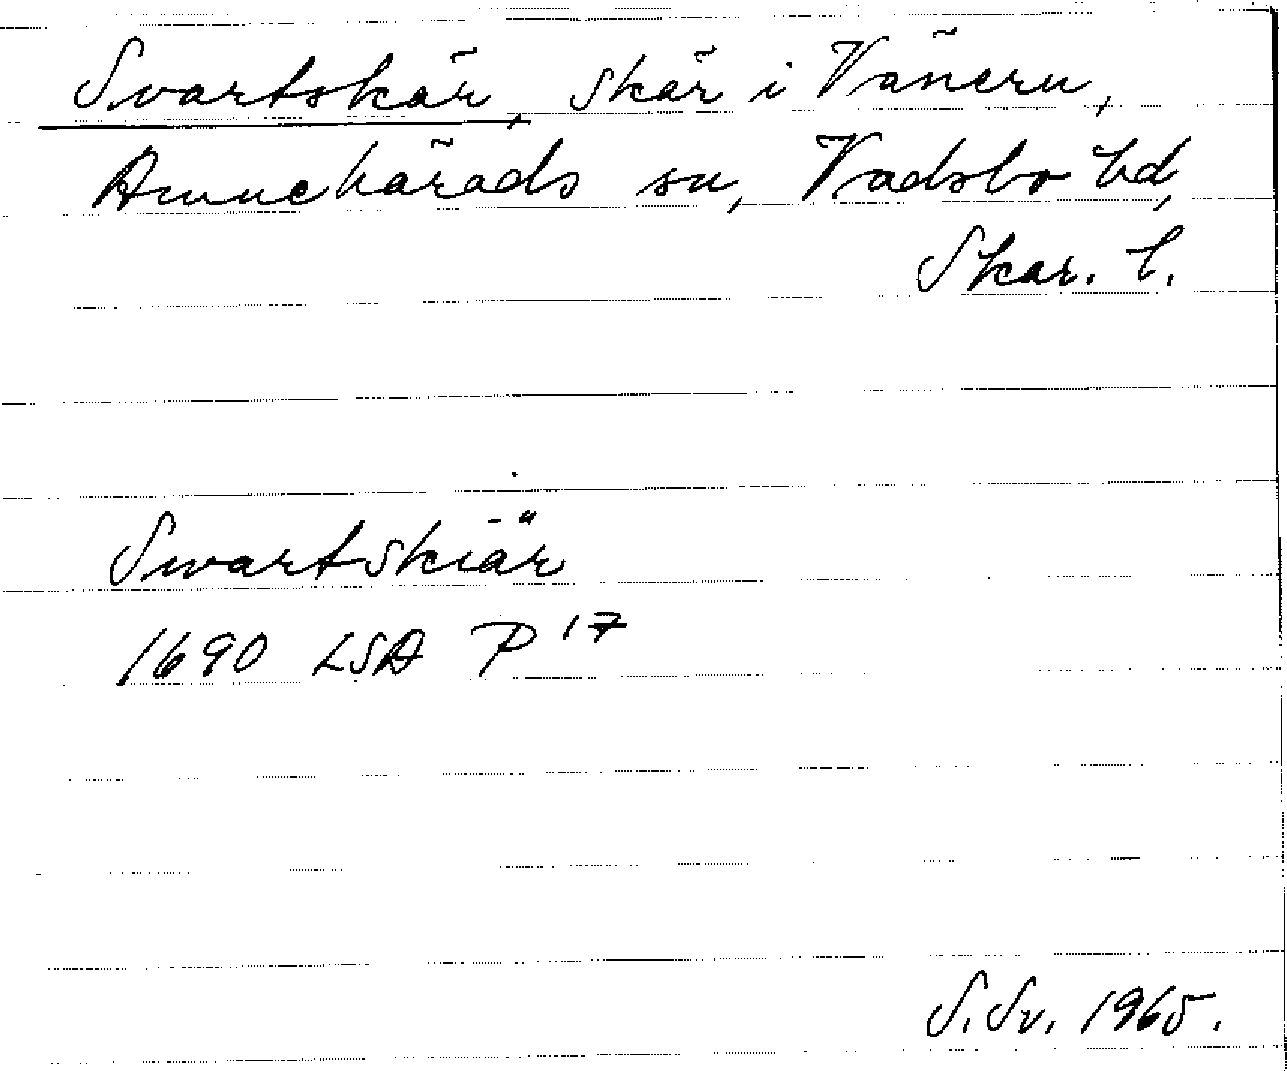 Svartskär, skär i Vänern,
Amnehärads sn, Vadsbo hd,
Skar. l.
Swartskiär
1690 LSA P 17
S. Sv. 1965.